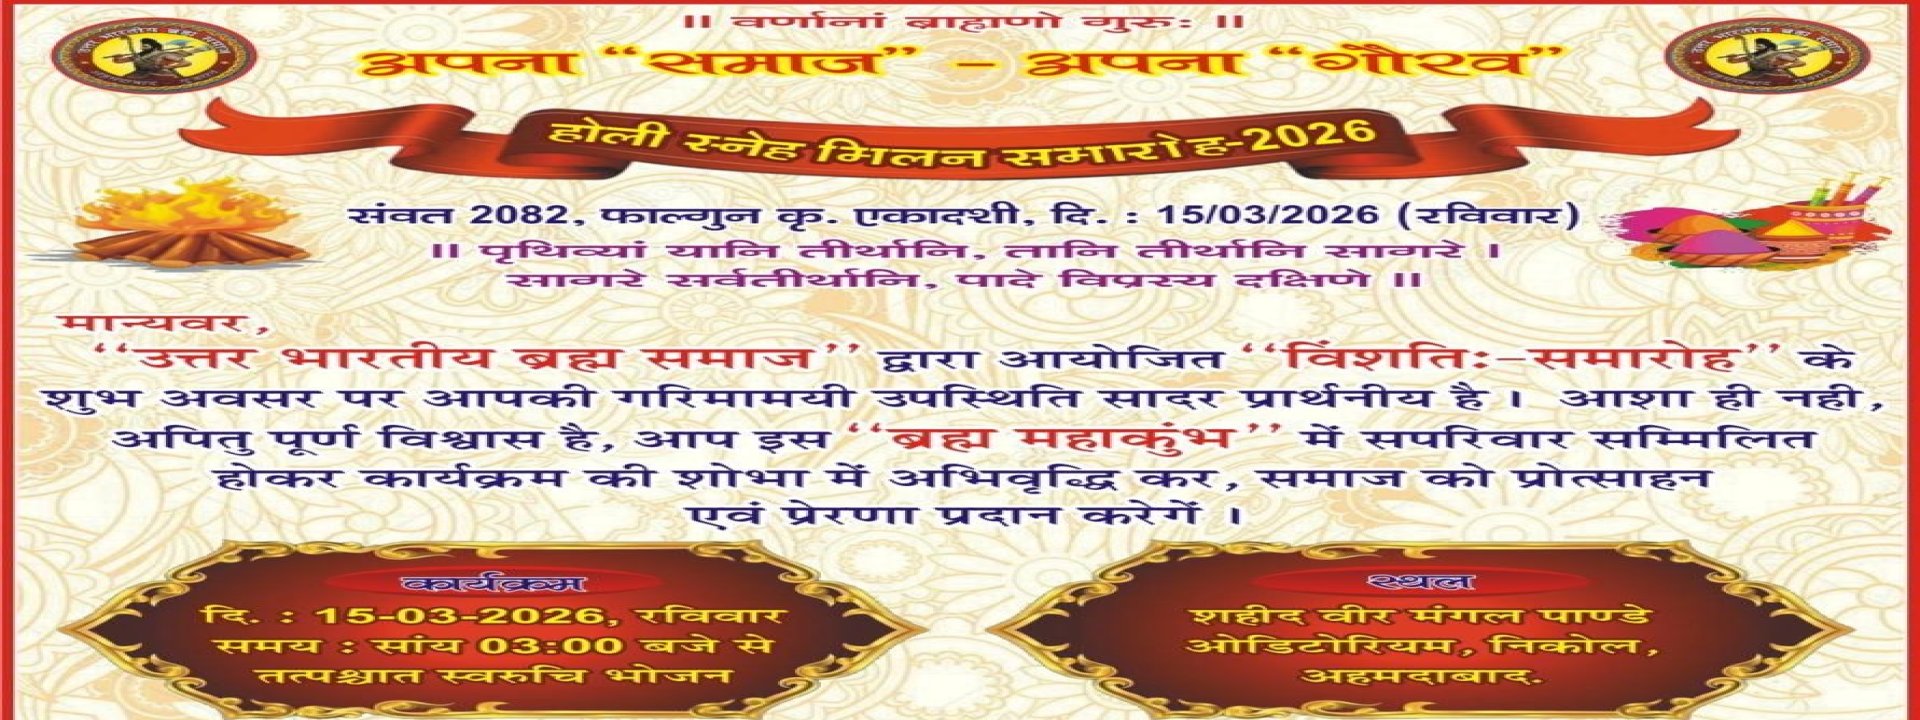 ॥ वर्णानां ब्राह्मणो गुरुः ॥
अपना “समाज” - अपना “गौरव”
होली स्नेह मिलन समारोह-2026
संवत 2082, फाल्गुन कृ. एकादशी, दि. : 15/03/2026 (रविवार)
॥ पृथिव्यां यानि तीर्थानि, तानि तीर्थानि सागरे ।
सागरे सर्वतीर्थानि, पादे विप्रस्य दक्षिणे ॥
मान्यवर,
“उत्तर भारतीय ब्रह्म समाज” द्वारा आयोजित “विंशतिः-समारोह” के
शुभ अवसर पर आपकी गरिमामयी उपस्थिति सादर प्रार्थनीय है । आशा ही नही,
अपितु पूर्ण विश्वास है, आप इस “ब्रह्म महाकुंभ” में सपरिवार सम्मिलित
होकर कार्यक्रम की शोभा में अभिवृद्धि कर, समाज को प्रोत्साहन
एवं प्रेरणा प्रदान करेगें ।
कार्यक्रम
दि. : 15-03-2026, रविवार
समय : सांय 03:00 बजे से
तत्पश्चात स्वरुचि भोजन
स्थल
शहीद वीर मंगल पाण्डे
ओडिटोरियम, निकोल,
अहमदाबाद.